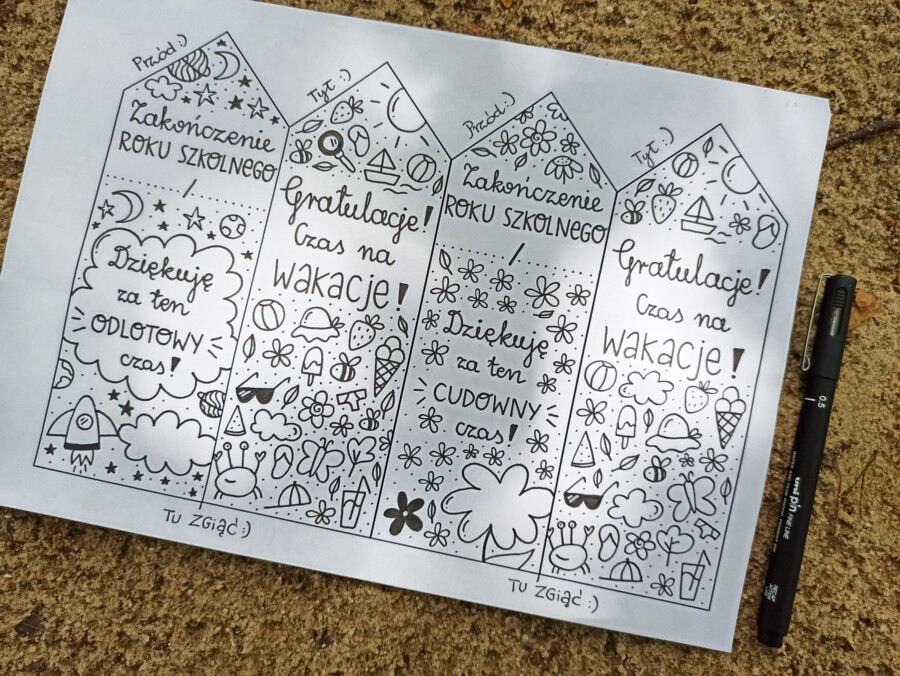 Przód:)
Zakończenie
ROKU SZKOLNEGO
/
Dziękuję
za ten
ODLOTOWY
czas!
Tył:)
Gratulacje!
Czas na
WAKACJE!
TU ZGIĄĆ:)
Przód:)
Zakończenie
ROKU SZKOLNEGO
/
Dziękuję
za ten
CUDOWNY
czas!
Tył:)
Gratulacje!
Czas na
WAKACJE!
TU ZGIĄĆ:)
0.5
uni pin FINE LINE